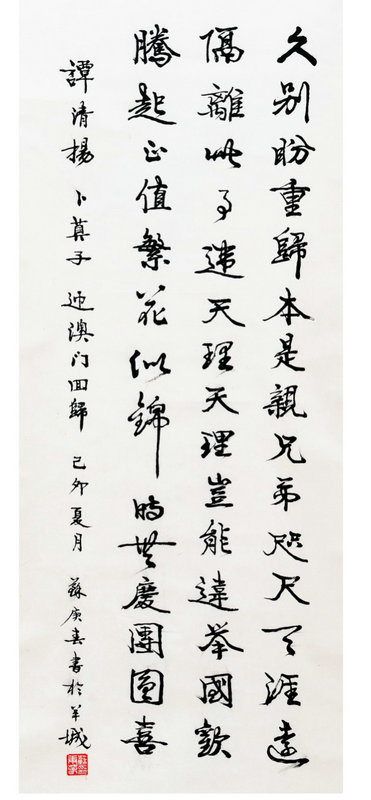 久別盼重歸本是親兄弟咫尺天涯遠
隔離此事違天理天理豈能違舉國歡
騰起正值繁花似錦時共慶團圓喜
譚清揚 卜算子 迎澳门回歸 己卯夏月 蘇庚春書於羊城